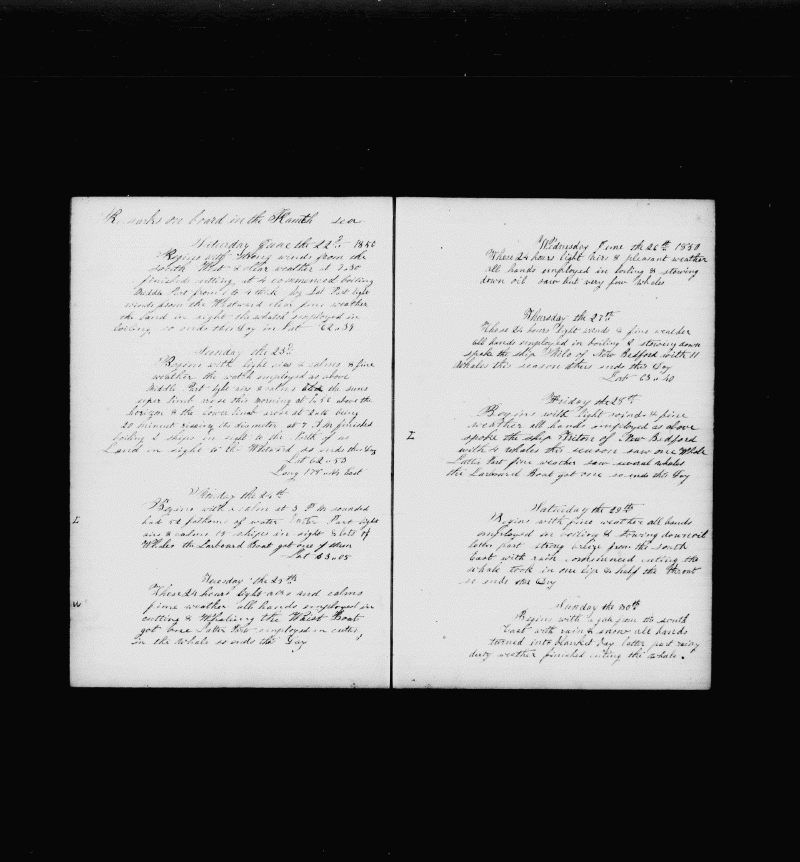 Remarks on board in the sea
Saturday June the 22d 1850
Begins with strong winds from the
South West & clear weather at 7.30
finished cutting at 4 commenced boiling
Middle Part from & thick fog Lat Part light
winds from the Westward clear fine weather
the Land in sight the watch employed in
boiling so ends this day in Lat 62..59
Sunday the 23d
Begins with light airs & calms & fine
weather the watch employed as above
Middle Part light airs & calms the suns
uper limb rose this morning at above the
horizon & the lower limb arose at being
20 minuet giving its diameter at 7 A M finished
boiling 2 ships in sight to the North of us
Land in sight to the Westward so ends this day
Lat 62..53
Long 178.. East
Monday the 24th
Begins with a calm at 3 P M sounded
had 52 fathoms of water Later Part light
airs & calms 15 ships in sight & lots of
Whales the Larboard Boat got one of them
Lat 63..05
L
Tuesday the 25th
These 24 hours light airs and calms
fine weather all hands employed in
cutting & Whaleing the Waist Boat
got one later Part employed in cuttin,
in the whale so ends this Day
W
Wednesday June the 26th 1850
These 24 hours light airs & pleasant weather
all hands employed in boiling & stowing
down oil saw but very few whales
Thursday the 27th
These 24 hours light winds & fine weather
all hands employed in boiling & stowing down
spoke the ship Milo of New Bedford with 11
whales this season so ends this day
Lat 63..40
Friday the 28th
Begins with light winds & fine
weather all hands employed as above
spoke the ship Triton of New Bedford
with 4 whales this season saw one Whale
Latter Part fine weather saw several whales
the Larboard Boat got one so ends this day
L
Saturday the 29th
Begins with fine weather all hands
employed in boiling & stowing down oil
latter part strong breeze from the south
East with rain commenced cuting the
whale took in one lip & half the throat
so ends this Day
Sunday the 30th
Begins with a gale from the south
East with rain & snow all hands
turned into blanket bay latter part rainy
dirty weather finished cuting the whale.